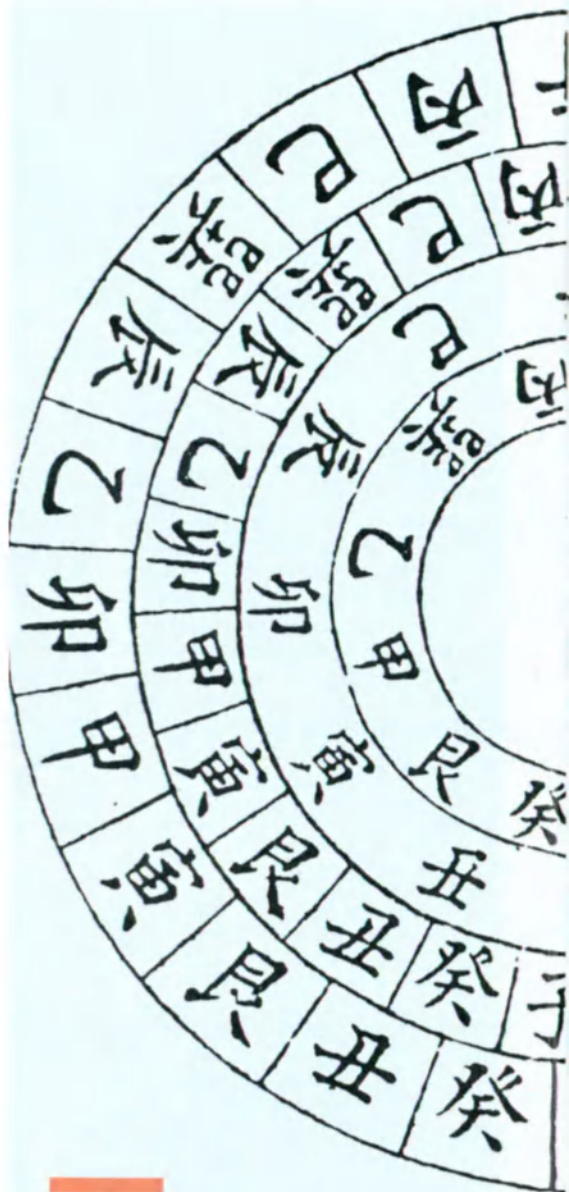 丙巳巽辰乙卯甲寅艮丑癸
丙巳巽辰乙卯甲寅艮丑癸子
巳辰卯寅丑
丙巽乙甲艮癸